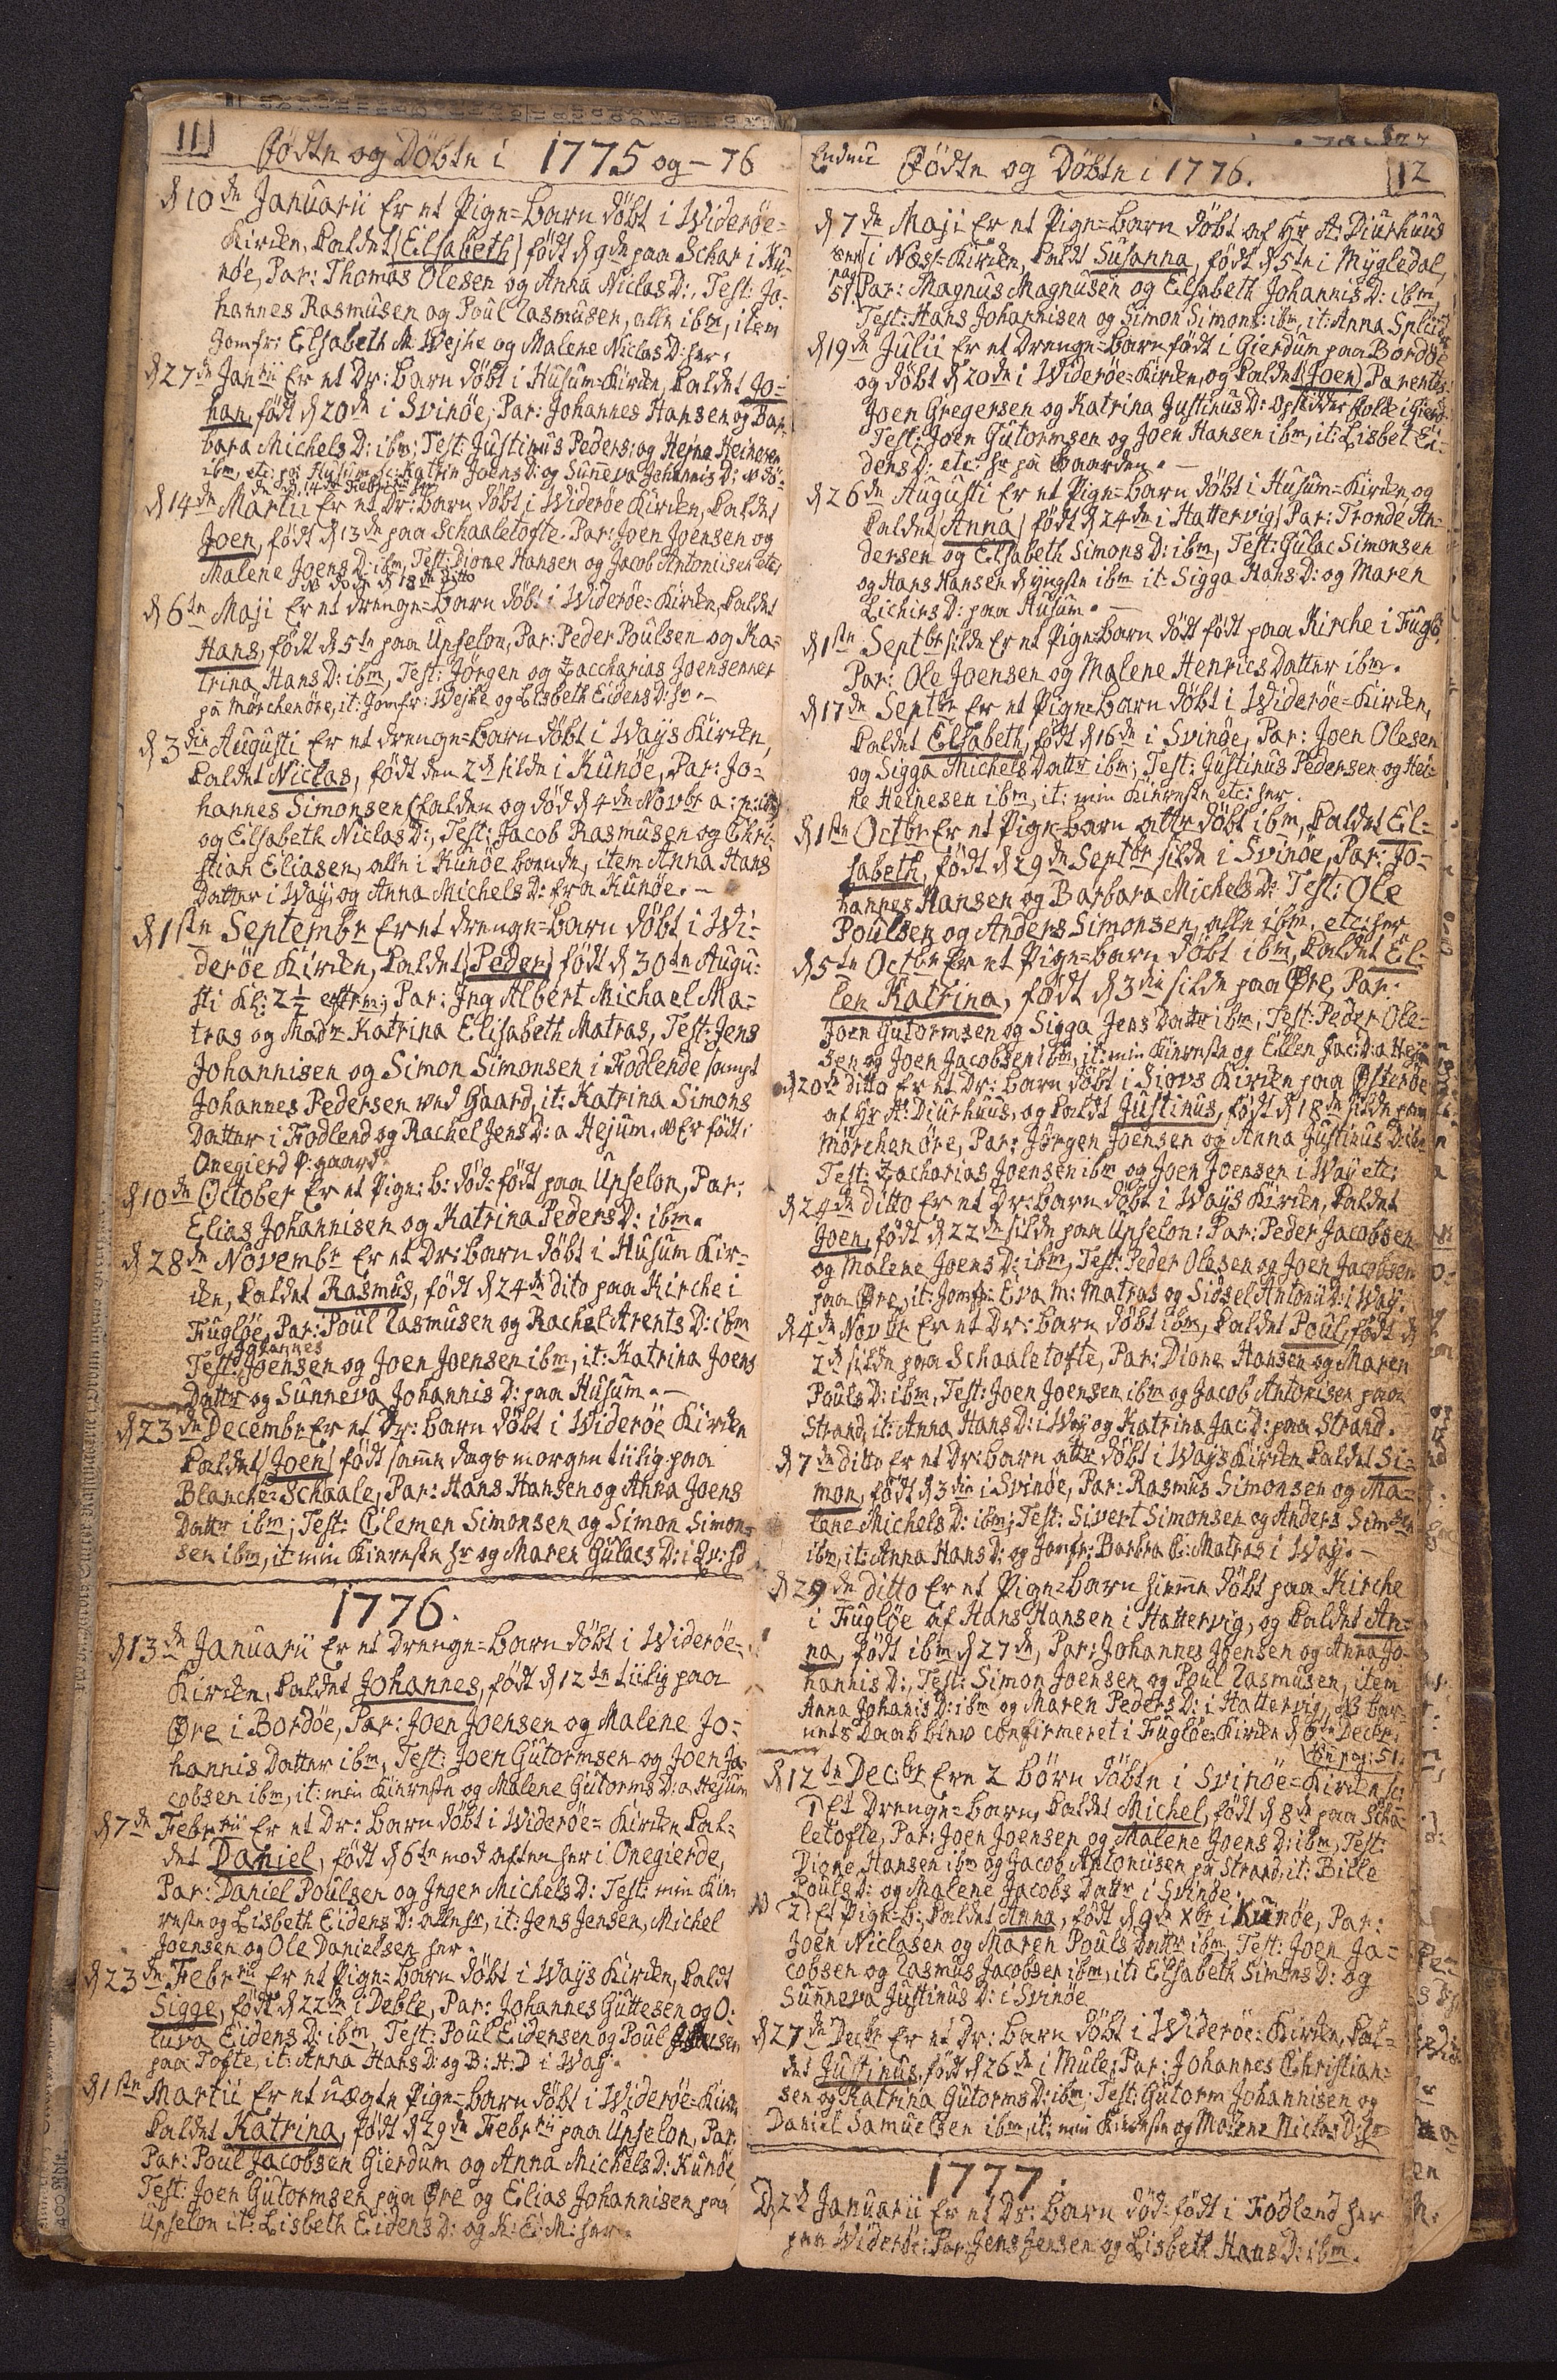 11
Födte og Döbte i 1775 og - 76
d 10de Januarii Er et Pige=barn döbt i Wideröe=
Kircken, kaldet (Elsabeth) födt d 9de paa Schar i Ku¬
nöe, Par: Thomas Olesen og Anna Niclas D:, Test: Jo¬
hannes Rasmusen og Poul Rasmusen, alle ibm, item
Jomfr: Elsabeth M: Wejhe og Malene Niclas D: her.
d 27de Janrii Er et Dr: barn döbt i Husum=Kircken, kaldet Jo=
han, födt d 20de i Svinöe, Par: Johannes Hansen og Bar¬
bara Michels D: ibm; Test: Justinus Peders: og Hejne Heinesen
ibm, etc: paa Husum sc: Katrin Joens D: og Sunneva Johannis D: N dö¬
de d 14de Febr
d 14de Martii Er et Dr: barn döbt i Wideröe Kircken, kaldet
Joen, födt d 13de paa Schaaletofte. Par: Joen Joensen og
Malene Joens D: ibm, Test: Dione Hansen og Jacob Antoniisen etc:
N döde d 18de Ditto
d 6te Maji Er et drenge=barn döbt i Wideröe=Kircken, kaldet
Hans, födt d 5te paa Unselon, Par: Peder Poulsen og Ka=
trina Hans D: ibm, Test: Jörgen og Zaccharias Joensenner
på Mörchenöre, it: Jomfr: Wejhe og Lisbeth Eidens D: hr.
d 3die Augusti Er et drenge=barn döbt i Ways Kircken,
kaldet Niclas, födt den 2d silde i Kunöe, Par: Jo=
hannes Simonsen (falden og död d 4de Novbr a: p:
og Elsabeth Niclas D:, Test: Jacob Rasmusen og Chri¬
stian Eliasen, alle i Kunöe boende, item Anna Hans
Datter i Way, og Anna Michels D: fra Kunöe.
d 1ste Septembr Er et drenge=barn döbt i Wi=
deröe Kircken, kaldet (Peder) födt d 30te Augu:
sti Kl: 2½ efterm; Par: Jng Albert Michael Ma=
tras og Madme Katrina Elisabeth Matras, Test: Jens
Johannisen og Simon Simonsen i Fodlende sampt
Johannes Pedersen ved Gaard, it: Katrina Simons
Datter i Fodlend og Rachel Jens D: a Hejum. N Er födt i
Onegierd P: gaard
d 10de October Er et Pige: b: död=födt paa Unselon, Par:
Elias Johannisen og Katrina Peders D: ibm.
d 28de Novembr Er et Dr: barn döbt i Husum Kir¬
cken, kaldet Rasmus, födt d 24de dito paa Kirche i
Fuglöe, Par: Poul Rasmusen og Rachel Arents D: ibm
Johannes
Test: Joensen og Joen Joensen ibm, it: Katrina Joens
Datter og Sunneva Johannis D: paa Husum.
d 23de Decembr Er et Dr: barn döbt i Wideröe Kircken
kaldet (Joen) födt samme dags morgen tiilig paa
Blanche=Schaale, Par: Hans Hansen og Anna Joens
Datter ibm; Test: Clemen Simonsen og Simon Simon=
sen ibm, it: min Kiereste hr og Maren Gulacs D: i Qv: sd
1776.
d 13de Januarii Er et Drenge=barn döbt i Wideröe=
Kircken, kaldet Johannes, födt d 12te tiilig paa
Öre i Bordöe, Par: Joen Joensen og Malene Jo=
hannis Datter ibm, Test: Joen Gutormsen og Joen Ja¬
cobsen ibm, it: min Kiereste og Malene Gutorms D: a Hejum
d 7de Febrrii Er et Dr: barn döbt i Wideröe=Kircken kal=
det Daniel, födt d 6te mod aften her i Onegierde,
Par: Daniel Poulsen og Jnger Michels D: Test: min Kie¬
reste og Lisbeth Eidens D: alle hr, it: Jens Jensen, Michel
Joensen og Ole Danielsen her
d 23de Febrrii Er et Pige=barn döbt i Ways Kircken, kaldt
Sigge, födt d 22de i Deble, Par: Johannes Guttesen og O:
luva Eidens D: ibm, Test: Poul Eidensen og Poul
paa Tofte, it: Anna Hans D: og B: H: D i Way.
d 1ste Martii Er et uægte Pige=barn döbt i Wideröe=Kirck
kaldet Katrina, födt d 29de Febrrii paa Unselon, Par:
Par: Poul Jacobsen Gierdum og Anna Michels D: Kunöe
Test: Joen Gutormsen paa Öre og Elias Johannisen paa
Unselon it: Lisbeth Eidens D: og K: E: M: her.
Endnu Födte og Döbte i 1776. 12
d 7de Maji Er et Pige=barn döbt af Hr A: Diurhuus
i Næs=Kircken, kaldt Susanna, födt d 5te i Mygledal,
pag 51
Par: Magnus Magnusen og Elsabeth Johannis D: ibm,
Test: Hans Johannisen og Simon Simons: ibm, it: Anna Splid
d 19de Julii Er et Drenge=barn födt i Gierdum paa Bordöe
og döbt d 20de i Wideröe=Kircken, og kaldet (Joen) Parentes:
Joen Gregersen og Katrina Justinus D:
Test: Joen Gutormsen og Joen Hansen ibm, it: Lisbet Ei¬
dens D: etc: hr på Gaarden.
d 26de Augusti Er et Pige=barn döbt i Husum=Kircken og
kaldet (Anna) födt d 24de i Hattervig, Par: Tronde An=
dersen og Elsabeth Simons D: ibm, Test: Gulac Simonsen
og Hans Hansen d yngste ibm it: Sigga Hans D: og Maren
Zichirs D: paa Husum.
d 1ste Septbr silde Er et Pige=barn död födt paa Kirche i Fuglö,
Par: Ole Joensen og Malene Henrics Datter ibm.
d 17de Septbr Er et Pige=barn döbt i Wideröe=Kircken,
kaldet Elsabeth, födt d 16de i Svinöe, Par: Joen Olesen
og Sigga Michels Datter ibm; Test: Justinus Pedersen og Hei=
ne Heinesen ibm, it: min Kiereste etc: her.
d 1ste Octbr Er et Pige=barn atter döbt ibm, kaldet El=
sabeth, födt d 29de Septbr silde i Svinöe, Par: Jo=
hannes Hansen og Barbara Michels D: Test: Ole
Poulsen og Anders Simonsen, alle ibm, etc: her
d 5te Octbr Er et Pige=barn döbt ibm, kaldet El:
len Katrina, födt d 3die silde paa Øre, Par:
Joen Gutormsen og Sigga Jens Datter ibm, Test: Peder Ole=
sen og Joen Jacobsen ibm, it: min Kiereste og Ellen Jac: D: a Hejm
d 20de ditto Er et Dr: barn döbt i Siovs Kircken paa Østeröe
af Hr A: Diurhuus, og kaldt Justinus, födt d 18de silde paa
Mörchenöre, Par: Jørgen Joensen og Anna Justinus D: ibm
Test: Zacharias Joensen ibm og Joen Joensen i Way etc:
d 24de ditto Er et Dr: barn döbt i Ways Kircken, kaldet
Joen, födt d 22de silde paa Unselon: Par: Peder Jacobsen
og Malene Joens D: ibm, Test: Peder Olesen og Joen Jacobsen
paa Øre, it: Jomfr: Eva M: Matras og Sidsel Antonii D: i Way.
d 4de Novbr Er et Dr: barn döbt ibm, kaldet Poul, födt d
2d silde paa Schaaletofte, Par: Dione Hansen og Maren
Pouls D: ibm, Test: Joen Joensen ibm og Jacob Antonisen paa
Strand, it: Anna Hans D: i Way og Katrina Jac: D: paa Strand.
d 7de ditto Er et Dr: barn atter döbt i Ways Kircken kaldet Si=
mon, födt d 3die i Svinöe, Par: Rasmus Simonsen og Ma=
lene Michels D: ibm; Test: Sivert Simonsen og Anders Simsen
ibm, it: Anna Hans D: og Jomfr: Barbra C: Matras i Way.
d 29de ditto Er et Pige=barn hjemme döbt paa Kirche
i Fuglöe af Hans Hansen i Hattervig, og kaldet An=
na, födt ibm d 27de, Par: Johannes Joensen og Anna Jo¬
hannis D:, Test: Simon Joensen og Poul Rasmusen, item
Anna Johanis D: ibm og Maren Peders D: i Hattervig, NB bar¬
nets Daab blev confirmeret i Fuglöe Kircken d 6te Decbr.
pag: 51.
d 12te Decbr Ere 2 börn döbte i Svinöe=Kircken sc:
1 Et Drenge=barn, kaldet Michel, födt d 8de paa Scha¬
letofte, Par: Joen Joensen og Malene Joens D: ibm, Test:
Dione Hansen ibm og Jacob Antoniisen på Strand, it: Bille
Pouls D: og Malene Jacobs Datter i Svinöe.
N 2: Et Pige=b: kaldet Anna, födt d 9de Xbr i Kunöe, Par:
Joen Niclasen og Maren Pouls Datter ibm, Test: Joen Ja=
cobsen og Rasmus Jacobsen ibm, it: Elsabeth Simons D: og
Sunneva Justinus D: i Svinöe
d 27de Decbr Er et Dr: barn döbt i Wideröe: Kircken, kal¬
det Justinus, födt d 26de i Mule; Par: Johannes Christian=
sen og Katrina Gutorms D: ibm; Test: Gutorm Johannisen og
Daniel Samuelsen ibm, it: min Kiereste og Malene Niclas D: hr
1777.
D 2d Januarii Er et Dr: barn död=födt i Fodlend her
paa Wideröe: Par: Jens Jensen og Lisbeth Hans D: ibm.